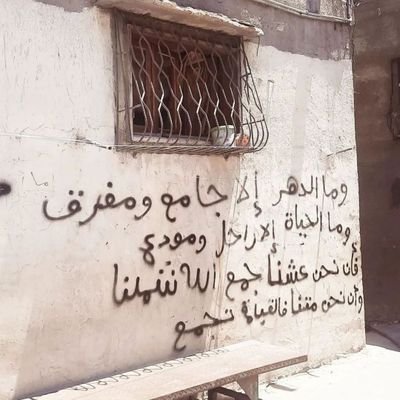 وما الدهر إلا جامع ومفرق
وما الحياة إلا راحل ومودع
فإن نحن عشنا جمع الله شملنا
وإن نحن متنا فالقيامة تجمع